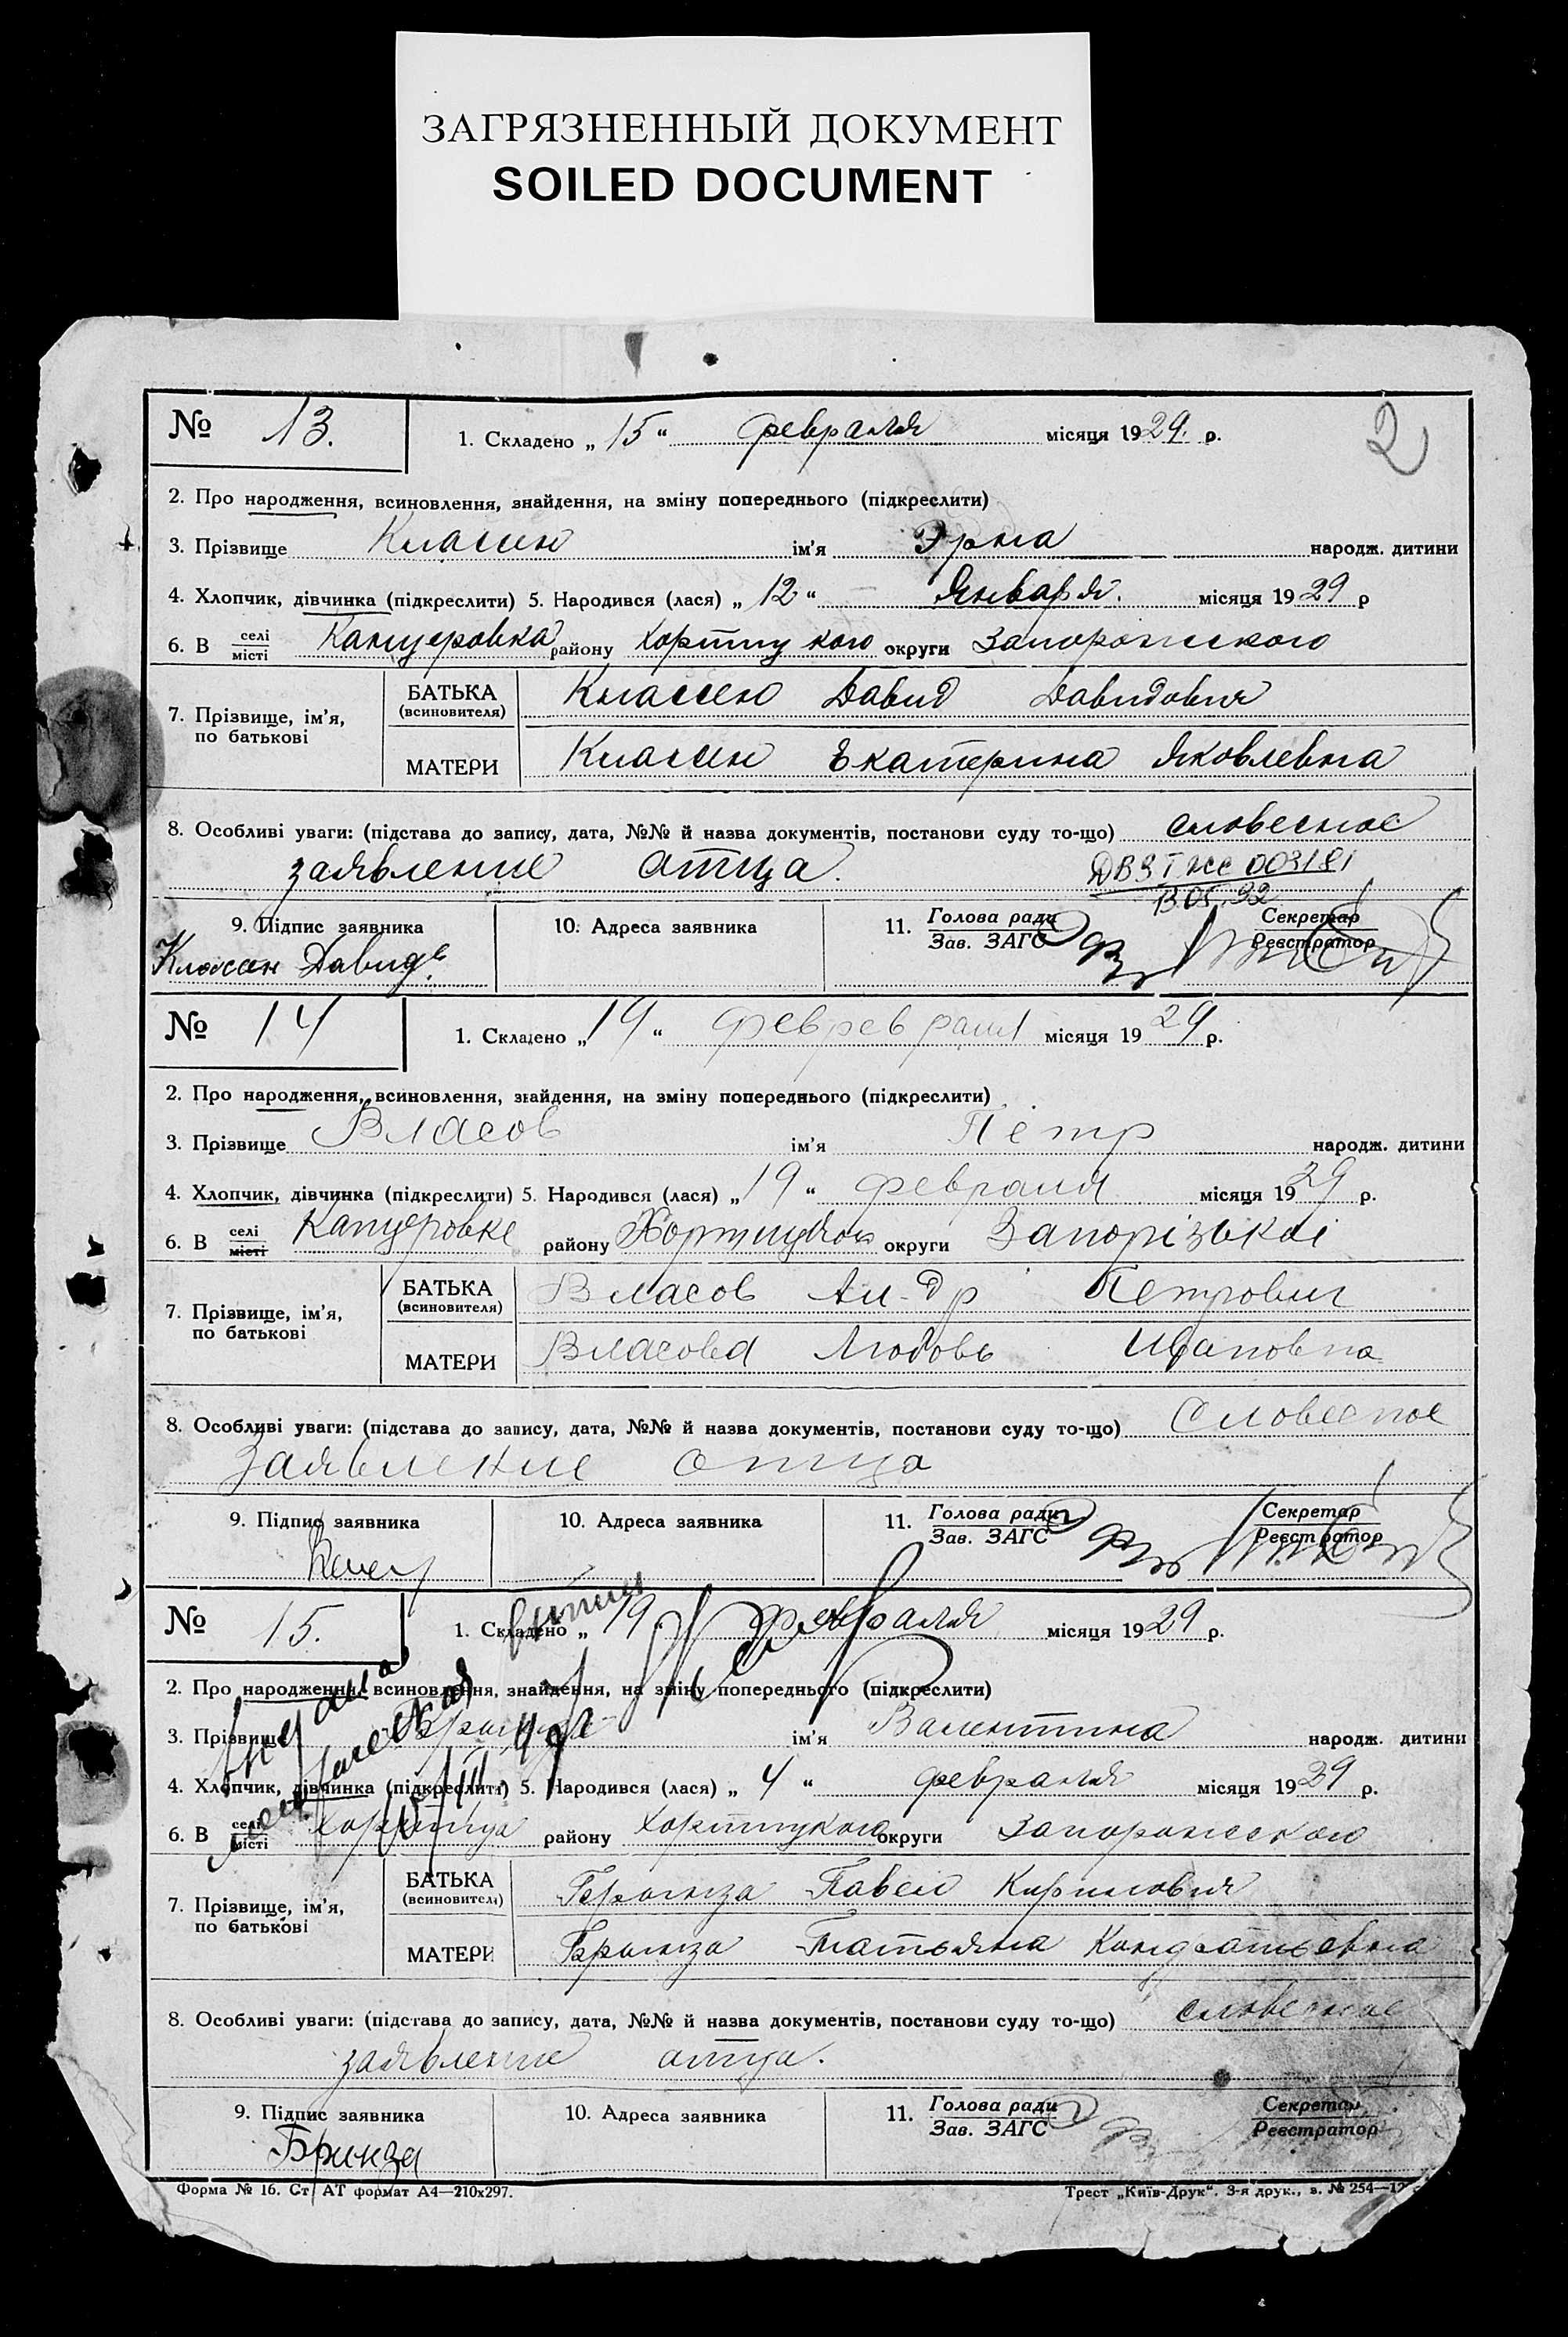 ЗАГРЯЗНЕННЫЙ ДОКУМЕНТ
SOILED DOCUMENT
2
№ 13. 1. Складено „ 15 “ февраля місяця 1929. р.
2. Про народження, всиновлення, знайдення, на зміну попереднього (підкреслити)
3. Прізвище Классен ім'я Эрна народж. дитини
4. Хлопчик, дівчинка (підкреслити) 5. Народився (лася) „ 12 “ Января. місяця 1929 р
6. В селі місті Канцеровка району Хортицкого округи Запорожского
7. Прізвище, ім'я, по батькові
БАТЬКА (всиновителя) Классен Давид Давидович
МАТЕРИ Классен Екатерина Яковлевна
8. Особливі уваги: (підстава до запису, дата, №№ й назва документів, постанови суду то-що) словесное
заявление отца.
003181
9. Підпис заявника 10. Адреса заявника 11. Голова ради Зав. ЗАГС Секретар Реєстратор
Классен Давид
№ 14 1. Складено „ 19 “ феврев раля місяця 1929 р.
2. Про народження, всиновлення, знайдення, на зміну попереднього (підкреслити)
3. Прізвище Власов ім'я Петр народж. дитини
4. Хлопчик, дівчинка (підкреслити) 5. Народився (лася) „ 19 “ февраля місяця 1929 р.
6. В селі місті Канцеровке району округи Запорізькоі
7. Прізвище, ім'я, по батькові
БАТЬКА (всиновителя) Власов Ал-др Петрович
МАТЕРИ Власова Любовь Ивановна
8. Особливі уваги: (підстава до запису, дата, №№ й назва документів, постанови суду то-що) Словесное
Заявление отца
9. Підпис заявника 10. Адреса заявника 11. Голова ради Зав. ЗАГС Секретар Реєстратор
№ 15. 1. Складено „ 19 февраля місяця 1929 р.
2. Про народження, всиновлення, знайдення, на зміну попереднього (підкреслити)
3. Прізвище ім'я Валентина народж. дитини
4. Хлопчик, дівчинка (підкреслити) 5. Народився (лася) „ 4 “ февраля місяця 1929 р.
6. В селі місті Хортица району Хортицкого округи Запорожского
7. Прізвище, ім'я, по батькові
БАТЬКА (всиновителя) Брынза Павел Кирилович
МАТЕРИ Брынза Татьяна Кондратьевна
8. Особливі уваги: (підстава до запису, дата, №№ й назва документів, постанови суду то-що) словесное
заявление отца.
9. Підпис заявника 10. Адреса заявника 11. Голова ради Зав. ЗАГС Секретар Реєстратор
Бринза
Форма № 16. Ст АТ формат А4—210х297. Трест „Київ-Друк“. 3-я друк., з. № 254—12